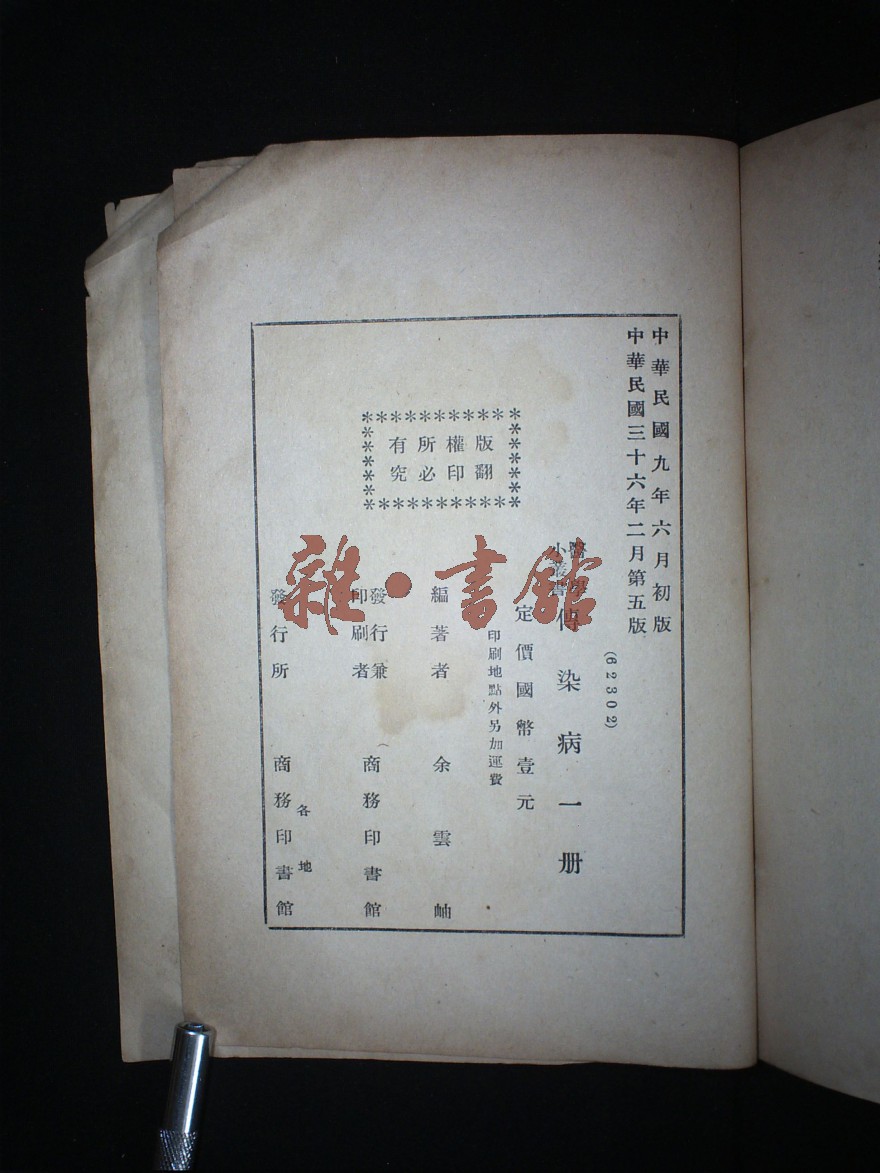 中華民國九年六月初版
中華民國三十六年二月第五版
(62302)
醫學
小叢書
傳染病一册
定價國幣壹元
印刷地點外另加運費
版權所有
翻印必究
編著者 余雲岫
發行兼
印刷者 商務印書館
各地
發行所 商務印書館
雜·書館